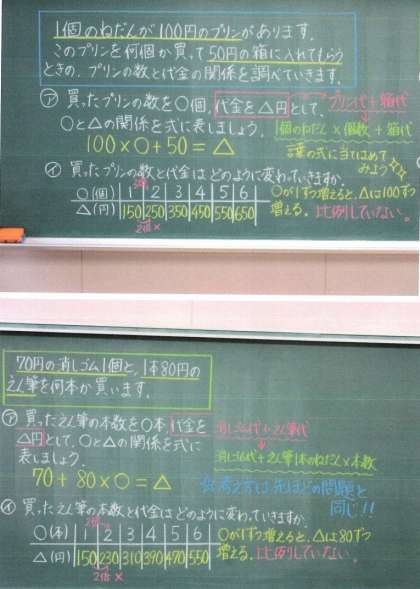 1個のねだんが100円のプリンがあります。
このプリンを何個か買って50円の箱に入れてもらう
ときの、プリンの数と代金の関係を調べていきます。
㋐ 買ったプリンの数を○個、代金を△円として、
○と△の関係を式に表しましょう。
プリン代+箱代
1個のねだん×個数+箱代
100×○+50=△
言葉の式に当てはめて
みよう
㋑ 買ったプリンの数と代金はどのように変わっていきますか。
2倍
○(個) 1 2 3 4 5 6
△(円) 150 250 350 450 550 650
2倍 ×
○が1ずつ増えると、△は100ずつ
増える。比例していない。
70円の消しゴム1個と、1本80円の
えん筆を何本か買います。
㋐ 買ったえん筆の本数を○本、代金を
△円として、○と△の関係を式に
表しましょう。
消しゴム代+えん筆代
消しゴム代+えん筆1本のねだん×本数
70+80×○=△
考え方は先ほどの問題と
同じ!!
㋑ 買ったえん筆の本数と代金はどのように変わっていきますか。
2倍
○(本) 1 2 3 4 5 6
△(円) 150 230 310 390 470 550
2倍 ×
○が1ずつ増えると、△は80ずつ
増える。比例していない。